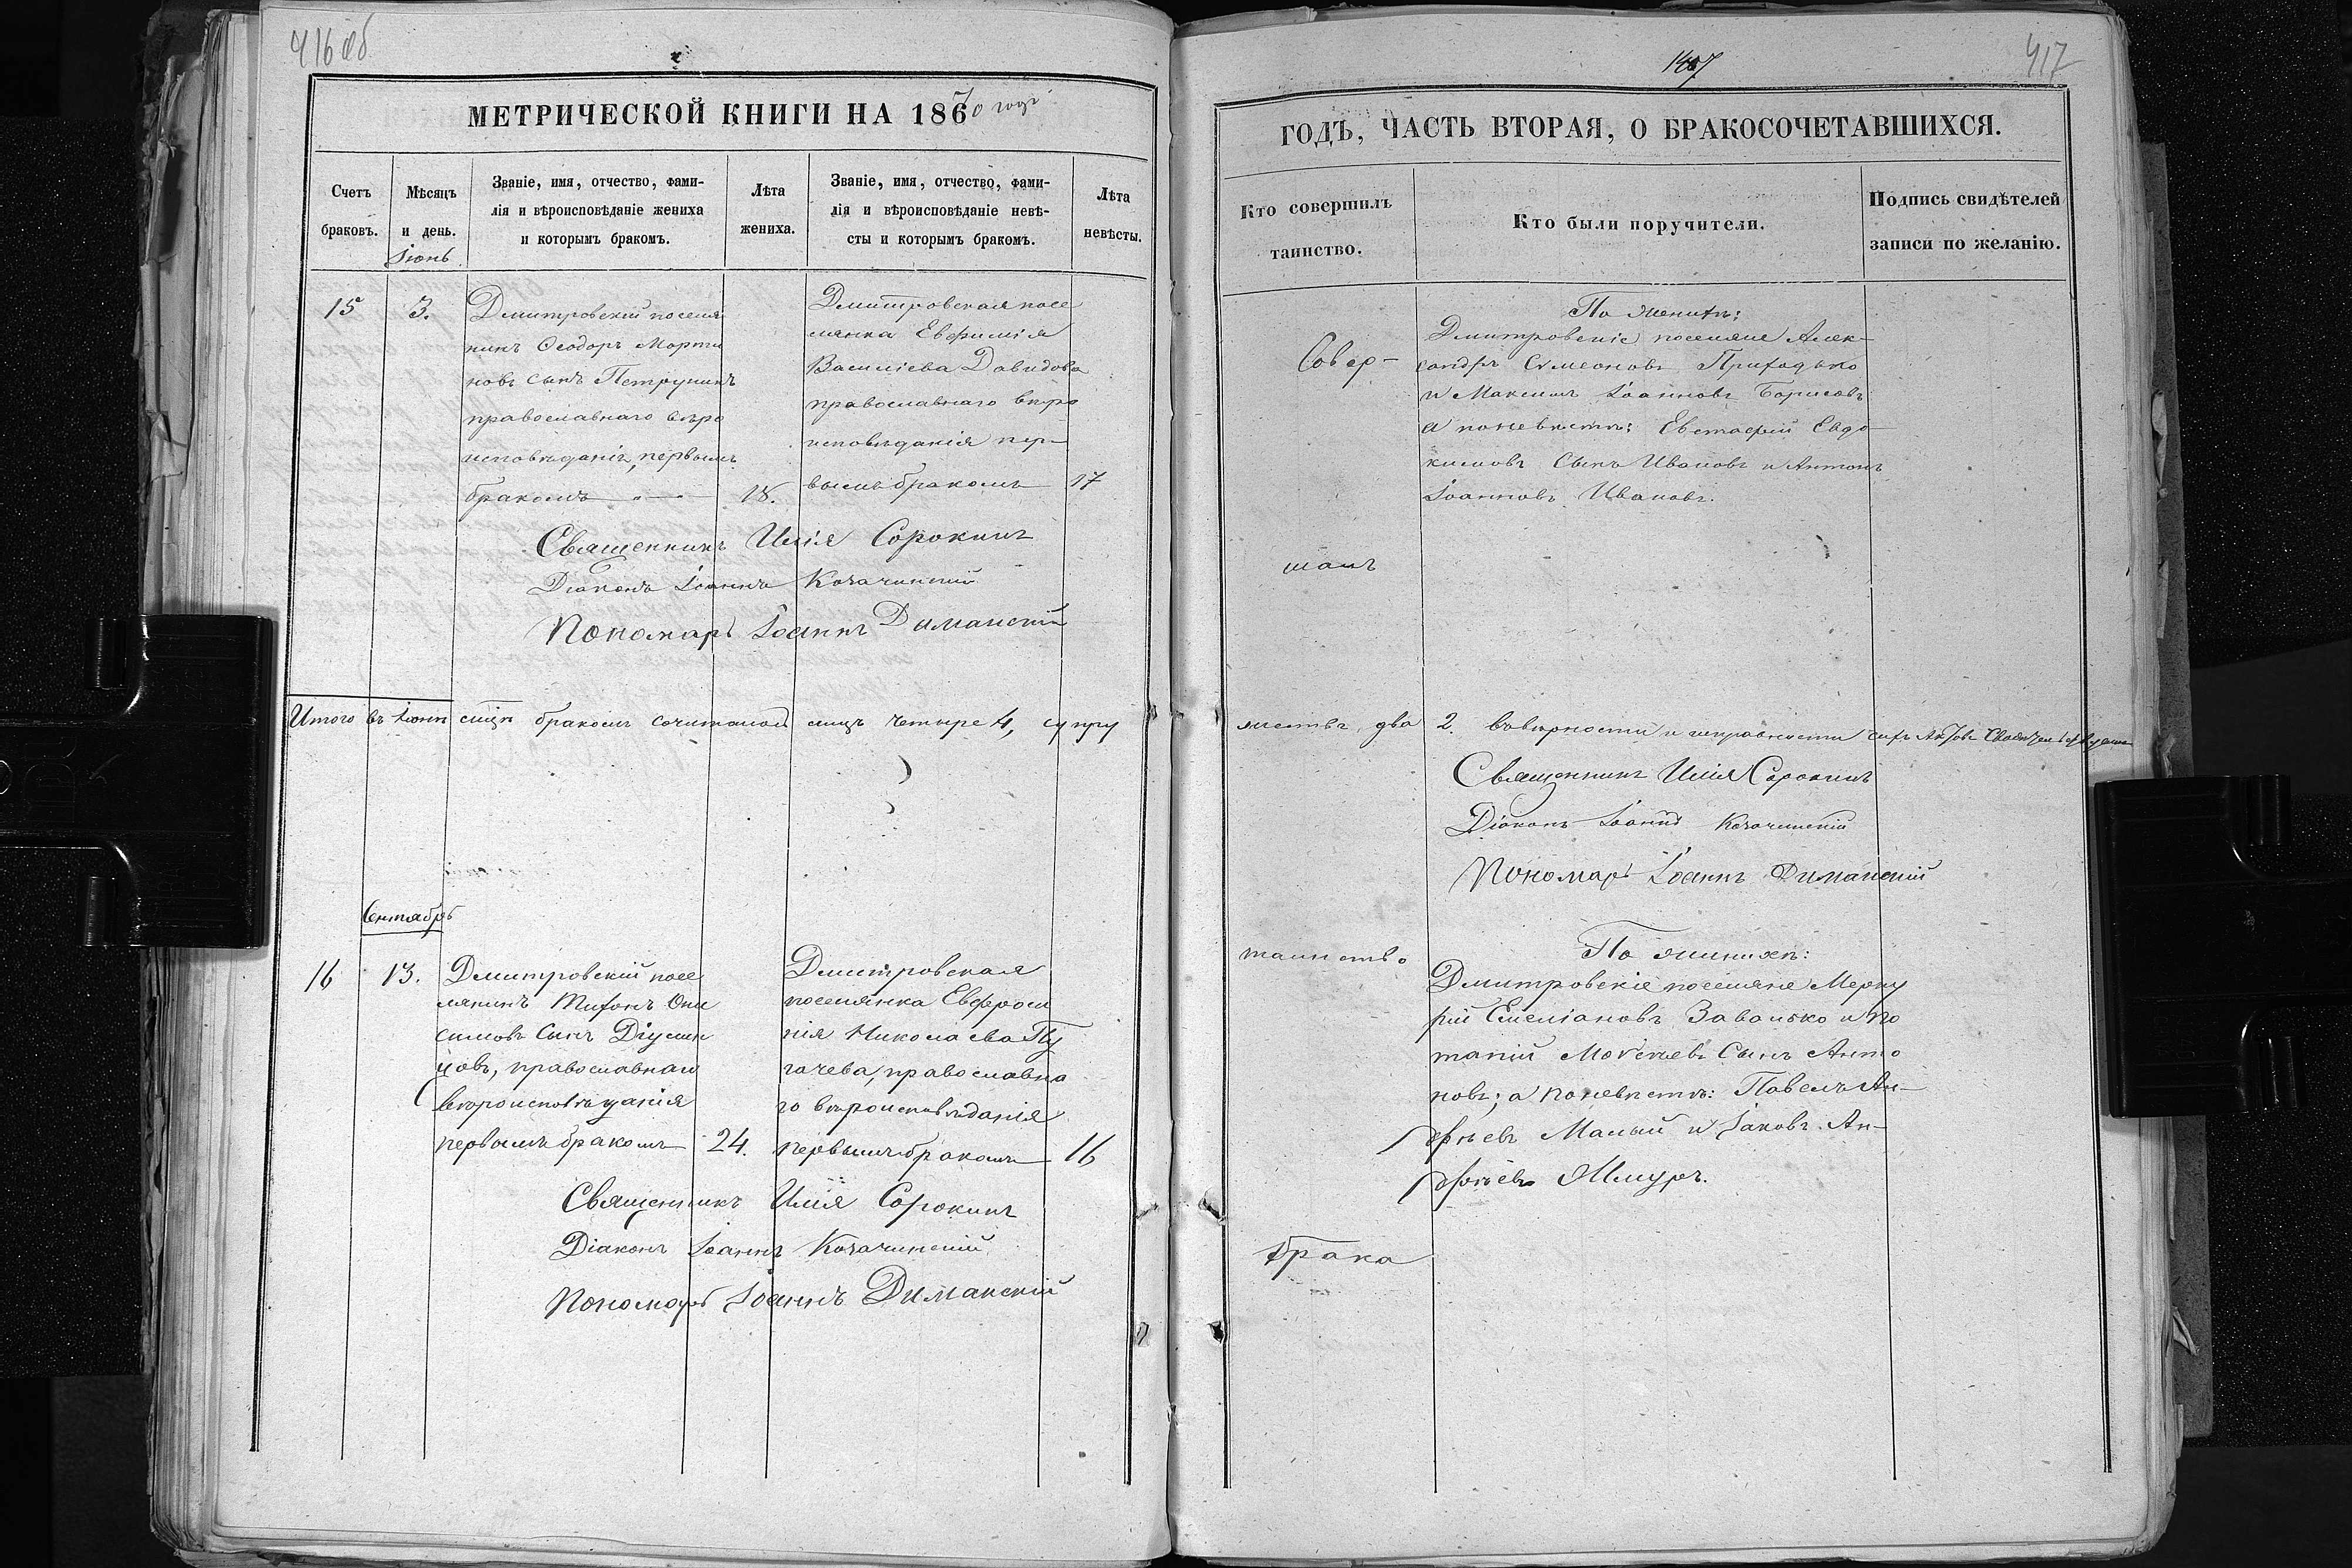 416 об
МЕТРИЧЕСКОЙ КНИГИ НА 1870 годъ
Счетъ браковъ.
Мѣсяцъ и день.
Іюнь
Званіе, имя, отчество, фами-
лія и вѣроисповѣданіе жениха
и которымъ бракомъ.
Лѣта жениха.
Званіе, имя, отчество, фами-
лія и вѣроисповѣданіе невѣ-
сты и которымъ бракомъ.
Лѣта невѣсты.
15
3.
Дмитровскій поселя
нинъ Ѳеодоръ Марти
новъ сынъ Петрунинъ
православнаго вѣро
исповѣданія, первымъ
бракомъ
18.
Дмитровская посе
лянка Евфимія
Василіева Давидова
православнаго вѣро
исповѣданія пер-
вымъ бракомъ
17
Священникъ Илія Сорокинъ
Діаконъ Іоаннъ Козачинскій
Пономарь Іоаннъ Диманскій
Итого въ Іюнѣ мцѣ бракомъ сочиталось лицъ четыре 4, супру
Сентябрь
16
13.
Дмитровскій посе
лянинъ Тихонъ Они
симовъ сынъ
православнаго
вѣроисповѣданія
первымъ бракомъ
24.
Дмитровская
поселянка Евфроси
нія Николаева Пу
гачева, православна
го вѣроисповѣданія
первымъ бракомъ
16
Священникъ Илія Сорокинъ
Діаконъ Іоаннъ Козачинскій
Пономарь Іоаннъ Диманскій
417
ГОДЪ, ЧАСТЬ ВТОРАЯ, О БРАКОСОЧЕТАВШИХСЯ.
Кто совершилъ
таинство.
Кто были поручители.
Подпись свидѣтелей
записи по желанію.
Совер-
По женихѣ:
Дмитровскіе поселяне Алек-
сандръ Симеоновъ Приходько
и Максимъ Іоанновъ Борисовъ
а по невѣстѣ: Евстафій Евдо-
кимовъ сынъ Ивановъ и Антонъ
Іоанновъ Ивановъ.
шалъ
жествъ два 2. въ вѣрности и исправности сихъ актовъ
Священникъ Илія Сорокинъ
Діаконъ Іоаннъ Козачинскій
Пономарь Іоаннъ Диманскій
таинство
По женихѣ:
Дмитровскіе поселяне Мерку
рій Емеліановъ Завалько и По
тапій сынъ Анто
новъ; а по невѣстѣ: Павелъ Ан-
дреевъ Малый и Іаковъ Ан-
дреевъ
брака